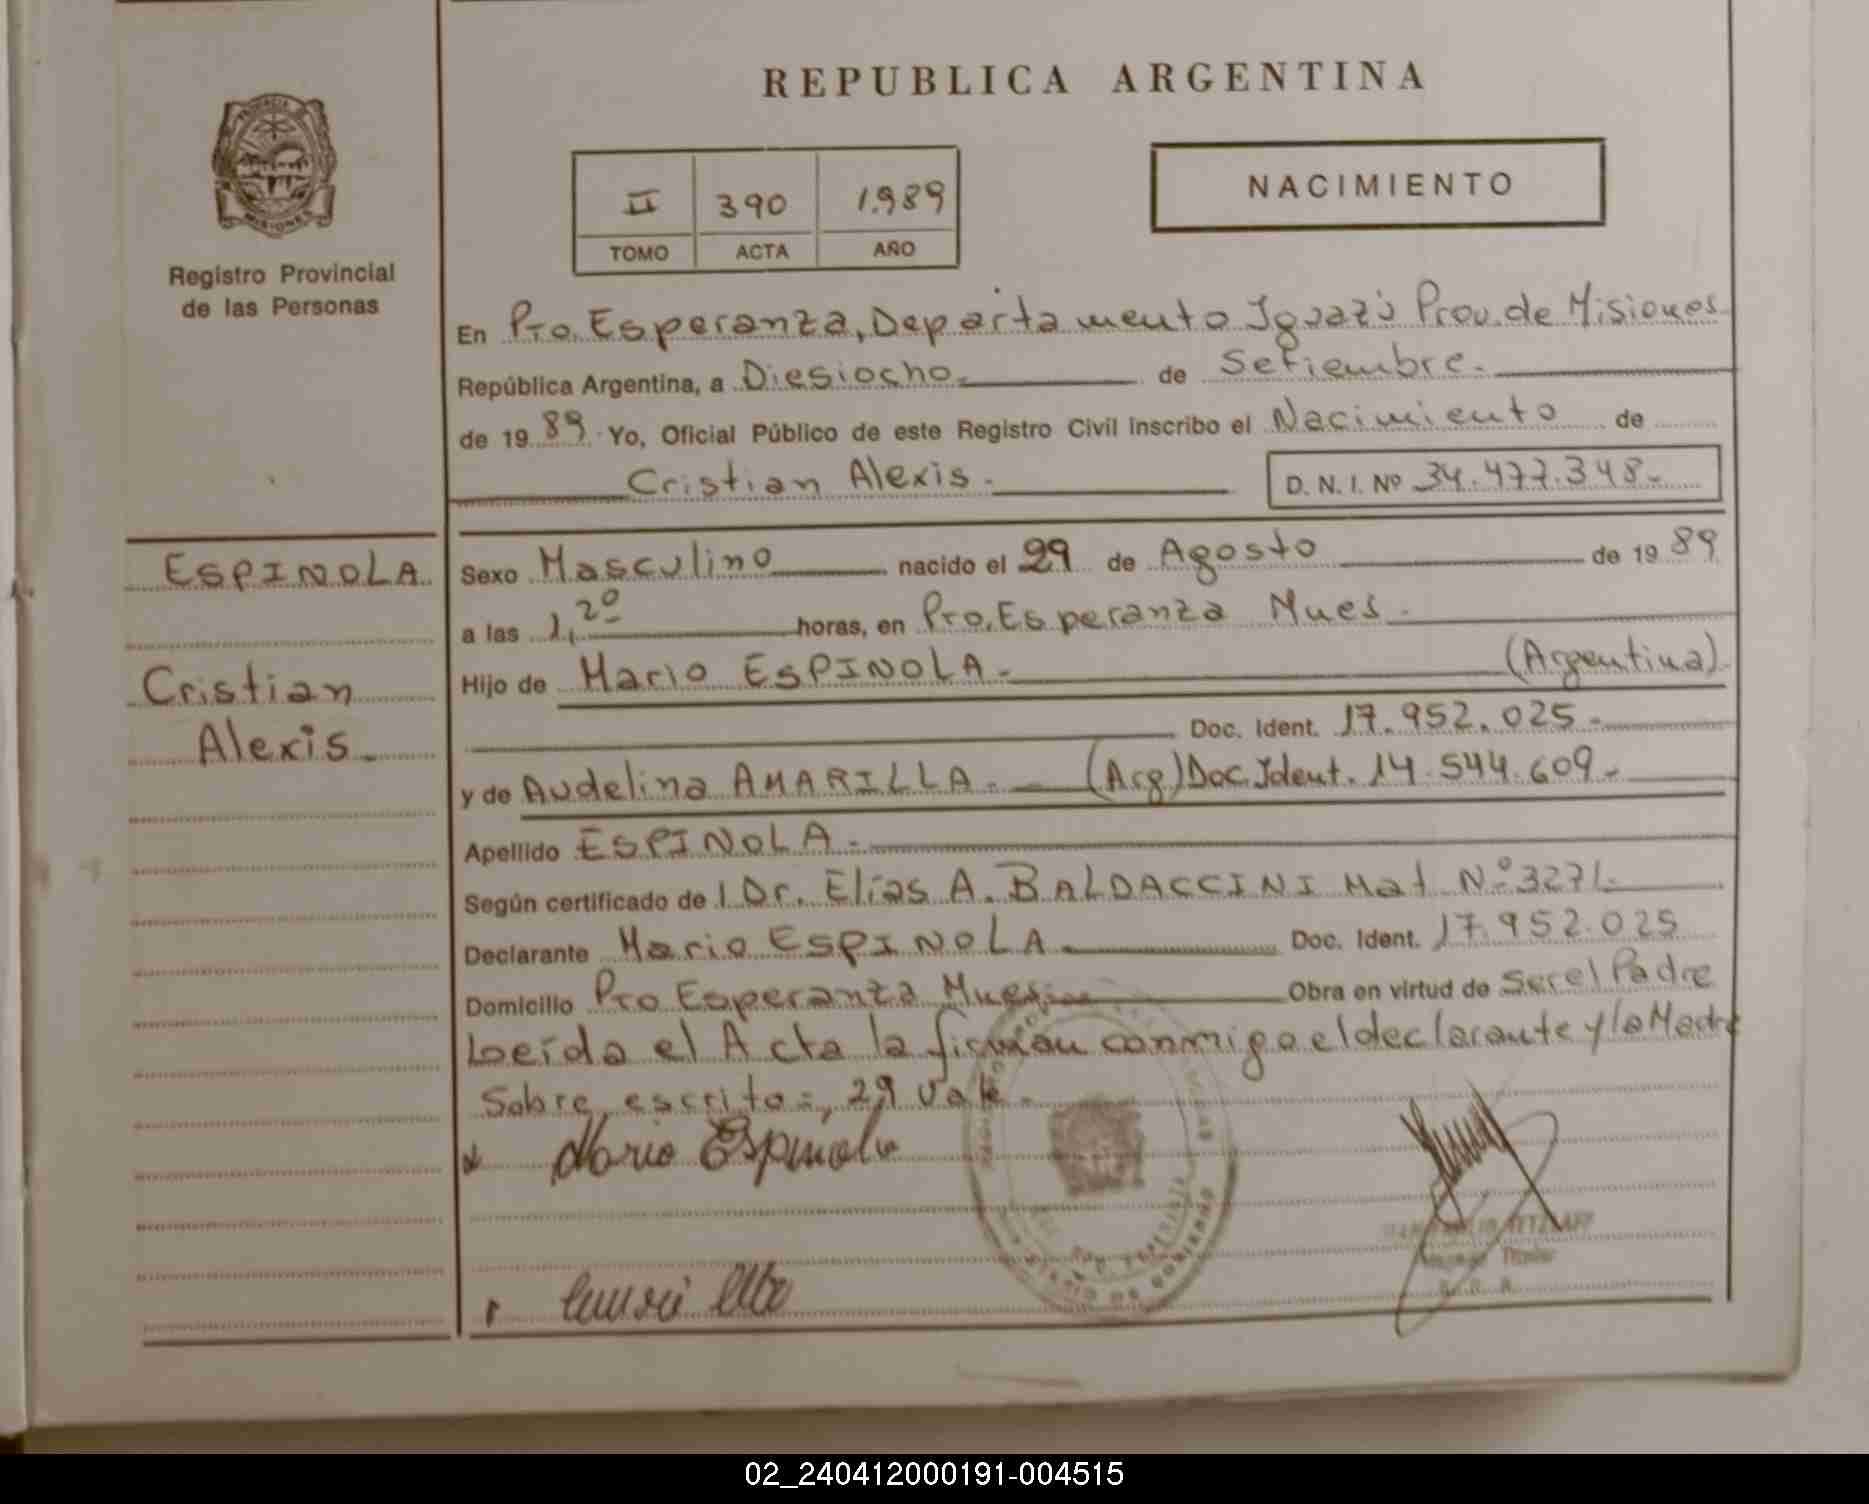 REPUBLICA ARGENTINA
NACIMIENTO
II 390 1.989
TOMO ACTA AÑO
MISIONES
Registro Provincial
de las Personas
En Pto. Esperanza, Departamento Iguazú Prov. de Misiones
República Argentina, a Diesiocho. de Setiembre.
de 19 89 Yo, Oficial Público de este Registro Civil inscribo el Nacimiento de
Cristian Alexis. D. N. I. Nº 34.477.348-
ESPINOLA
Cristian
Alexis.
Sexo Masculino nacido el 29 de Agosto de 19 89
a las 1,20 horas, en Pto. Esperanza Mnes.
Hijo de Mario ESPINOLA. (Argentina)
Doc. Ident. 17.952.025-
y de Audelina AMARILLA. (Arg) Doc. Ident. 14.544.609-
Apellido ESPINOLA.
Según certificado de l Dr. Elías A. BALDACCINI Mat Nº 3271.
Declarante Mario ESPINOLA Doc. Ident. 17.952.025
Domicilio Pto Esperanza Mnes Obra en virtud de ser el Padre
Leída el Acta la firman conmigo el declarante y la Madre
Sobre escrito =, 29 Vale.
Mario Espinola
Titular
02_240412000191-004515